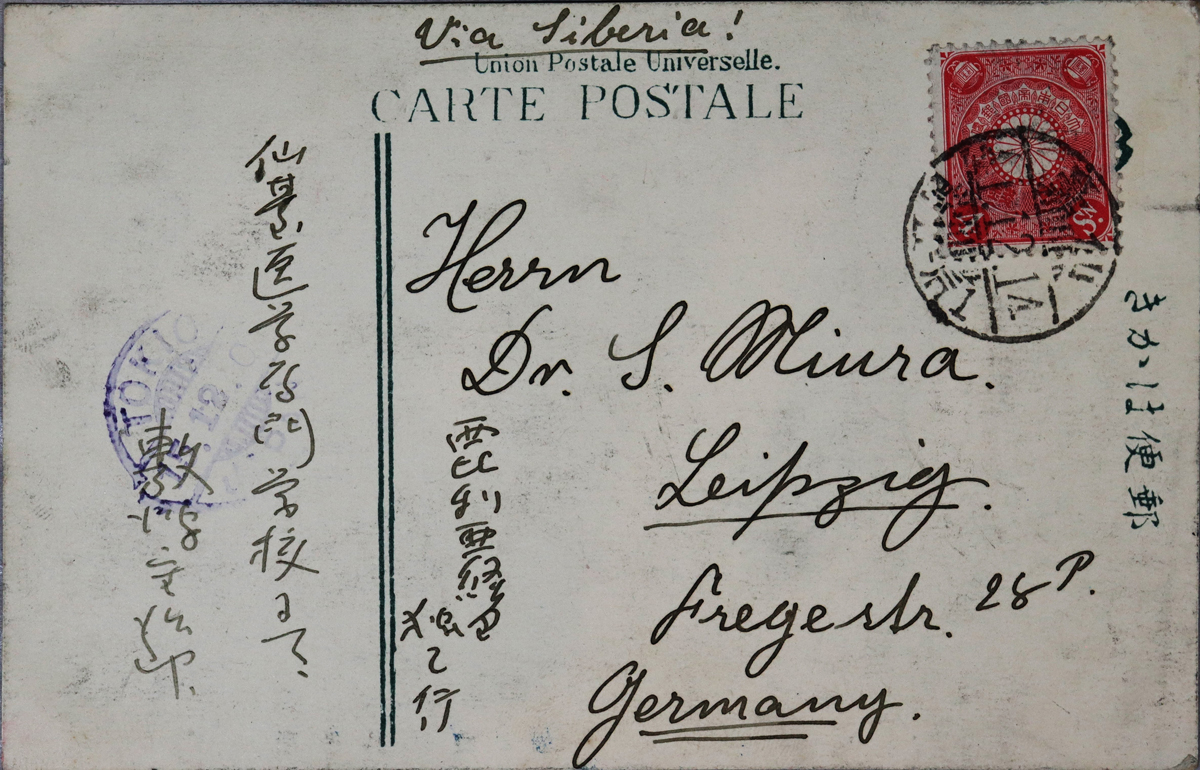 Via Siberia!
Union Postale Universelle.
CARTE POSTALE
Herrn
Dr. S. Miura.
Leipzig.
Fregestr. 28 P.
Germany.
きかは便郵
西比利亜経由
行
仙臺医学専門学校ヨリ
敷波重治郎
TOKIO
12